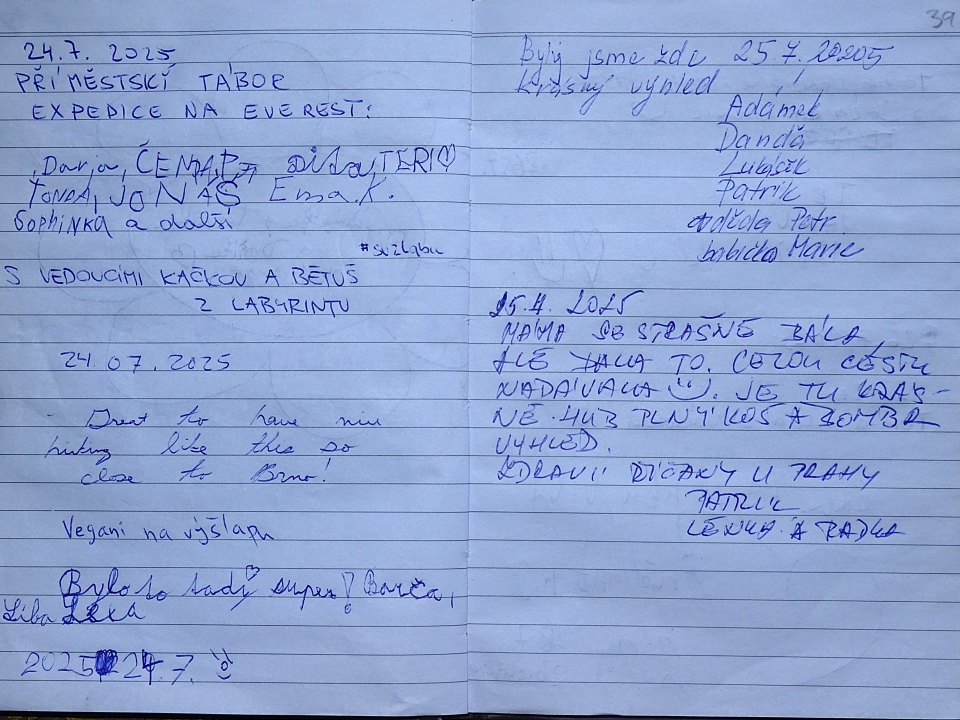 24.7. 2025
PŘÍMĚSTSKÍ TÁBOR
EXPEDICE NA EVEREST:
Darja, DiTa, TERI♡
TONDA, JONÁŠ Ema K.
SOPHINKA a další
S VEDOUCÍMI KAČKOU A BĚTUŠ
Z LABYRINTU
24.07.2025
Great to have nice
hiking like this so
close to Brno!
Vegani na výšlapu
Bylo to tady super! Barča,
Líba
2025 24.7.
39
Byly jsme zde 25.7.
Krásný výhled
Adámek
Danda
Lukášek
Patrik
děda Petr
babička Marie
2025
MÁMA SE STRAŠNĚ BÁLA,
ALE TO. CELOU CESTU
NADÁVALA. JE TU KRÁS-
NĚ. HUB PLNÝ KOŠ A BOMBA
VÝHLED.
ZDRAVÍ ŘÍČANY U PRAHY
PATRIK
LENKA A RADKA